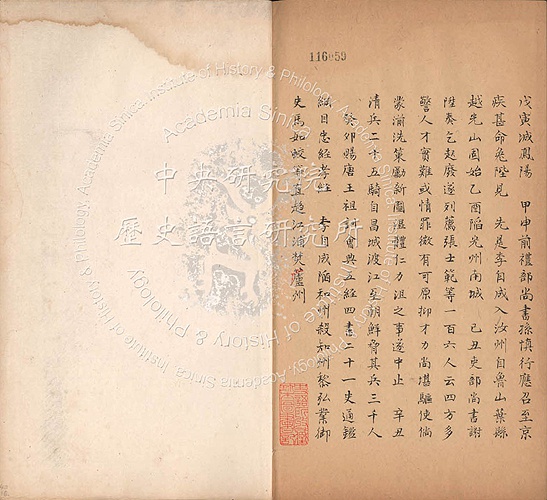 116059
戊寅城鳳陽　甲申前禮部尚書孫慎行應召至京
疾甚命免陛見　先是李自成入汝州自魯山葉縣
越先山固始乙酉陷光州南城　己丑吏部尚書謝
陞奏乞起廢遂列薦張士範等一百六人云四方多
警人才實難或情罪微有可原抑才力尚堪驅使倘
蒙湔洗策勵新圖溫體仁力沮之事遂中止　辛丑
清兵二十五騎自昌城渡江至朝鮮脅其兵三千人
癸卯賜唐王祖　會典五經四書二十一史通鑑
綱目忠經孝經　李自成陷和州殺知州黎弘業御
史馬如蛟　直趨江浦焚蘆州
中央研究院
歷史語言研究所
Institute of History & Philology, Academia Sinica